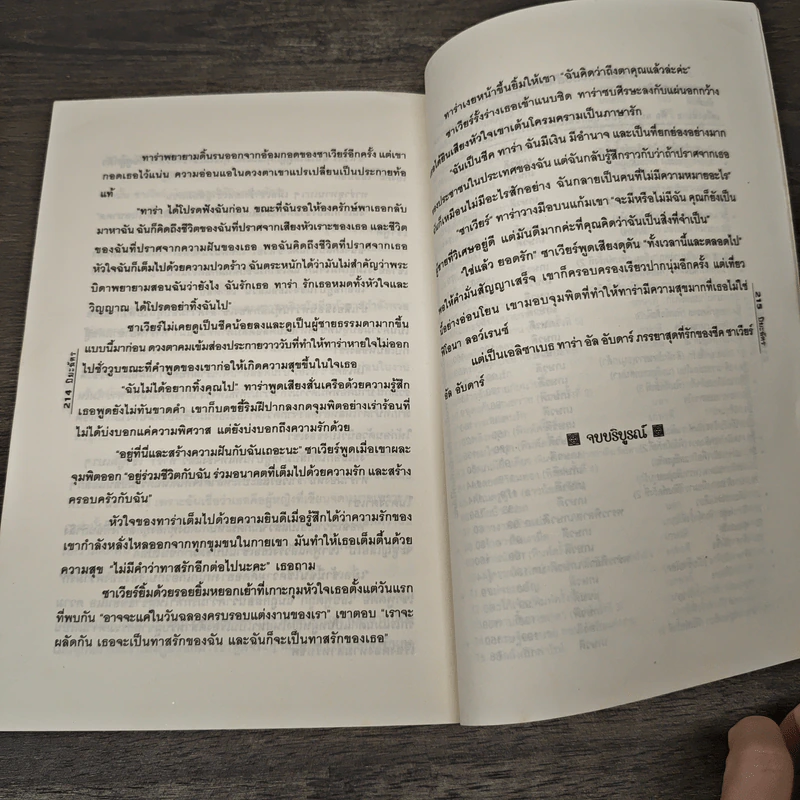 ทาร่าพยายามดิ้นรนออกจากอ้อมกอดของซาเวียร์อีกครั้ง แต่เขา
กอดเธอไว้แน่น ความอ่อนแอในดวงตาเขาแปรเปลี่ยนเป็นประกายท้อ
แท้
"ทาร่า ได้โปรดฟังฉันก่อน ขณะที่ฉันรอให้องครักษ์พาเธอกลับ
มาหาฉัน ฉันก็คิดถึงชีวิตของฉันที่ปราศจากเสียงหัวเราะของเธอ และชีวิต
ของฉันที่ปราศจากความฝันของเธอ พอฉันคิดถึงชีวิตที่ปราศจากเธอ
หัวใจฉันก็เต็มไปด้วยความปวดร้าว ฉันตระหนักได้ว่ามันไม่สำคัญว่าพระ
บิดาพยายามสอนฉันว่ายังไง ฉันรักเธอ ทาร่า รักเธอหมดทั้งหัวใจและ
วิญญาณ ได้โปรดอย่าทิ้งฉันไป"
ซาเวียร์ไม่เคยดูเป็นชีคน้อยลงและดูเป็นผู้ชายธรรมดามากขึ้น
แบบนี้มาก่อน ดวงตาคมเข้มส่องประกายวาววันที่ทำให้ทาร่าหายใจไม่ออก
ไปชั่ววูบขณะที่คำพูดของเขาก่อให้เกิดความสุขขึ้นในใจเธอ
"ฉันไม่ได้อยากทิ้งคุณไป" ทาร่าพูดเสียงสั่นเครือด้วยความรู้สึก
เธอพูดยังไม่ทันขาดคำ เขาก็บดขยี้ริมฝีปากลงกดจุมพิตอย่างเร่าร้อนที่
ไม่ได้บ่งบอกแค่ความพิศวาส แต่ยังบ่งบอกถึงความรักด้วย
"อยู่ที่นี่และสร้างความฝันกับฉันเถอะนะ" ซาเวียร์พูดเมื่อเขาผละ
จุมพิตออก "อยู่ร่วมชีวิตกับฉัน ร่วมอนาคตที่เต็มไปด้วยความรัก และสร้าง
ครอบครัวกับฉัน"
หัวใจของทาร่าเต็มไปด้วยความยินดีเมื่อรู้สึกได้ว่าความรักของ
เขากำลังหลั่งไหลออกจากทุกขุมขนในกายเขา มันทำให้เธอเต็มตื้นด้วย
ความสุข "ไม่มีคำว่าทาสรักอีกต่อไปนะคะ" เธอถาม
ซาเวียร์ยิ้มด้วยรอยยิ้มหยอกเย้าที่เกาะกุมหัวใจเธอตั้งแต่วันแรก
ที่พบกัน "อาจจะแค่ในวันฉลองครบรอบแต่งงานของเรา" เขาตอบ "เราจะ
ผลัดกัน เธอจะเป็นทาสรักของฉัน และฉันก็จะเป็นทาสรักของเธอ"
214 ปิยะฉัตร
ทาร่าเงยหน้าขึ้นยิ้มให้เขา "ฉันคิดว่าถึงตาคุณแล้วล่ะค่ะ"
ซาเวียร์รั้งร่างเธอเข้าแนบชิด ทาร่าซบศีรษะลงกับแผ่นอกกว้าง
ได้ยินเสียงหัวใจเขาเต้นโครมครามเป็นภาษารัก
"ฉันเป็นชีค ทาร่า ฉันมีเงิน มีอำนาจ และเป็นที่ยกย่องอย่างมาก
ประชาชนในประเทศของฉัน แต่ฉันกลับรู้สึกราวกับว่าถ้าปราศจากเธอ
ก็เหมือนไม่มีอะไรสักอย่าง ฉันกลายเป็นคนที่ไม่มีความหมายอะไร"
"ซาเวียร์" ทาร่าวางมือบนแก้มเขา "จะมีหรือไม่มีฉัน คุณก็ยังเป็น
ผู้ชายที่วิเศษอยู่ดี แต่มันดีมากค่ะที่คุณคิดว่าฉันเป็นสิ่งที่จำเป็น"
"ใช่แล้ว ยอดรัก" ซาเวียร์พูดเสียงดุดัน "ทั้งเวลานี้และตลอดไป"
พอให้คำมั่นสัญญาเสร็จ เขาก็ครอบครองเรียวปากนุ่มอีกครั้ง แต่เที่ยว
นี้อย่างอ่อนโยน เขามอบจุมพิตที่ทำให้ทาร่ามีความสุขมากที่เธอไม่ใช่
ฟิโอนา ลอว์เรนซ์
แต่เป็นเอลิซาเบธ ทาร่า อัล อับดาร์ ภรรยาสุดที่รักของชีค ซาเวียร์
อัล อับดาร์
จบบริบูรณ์
215 ปิยะฉัตร